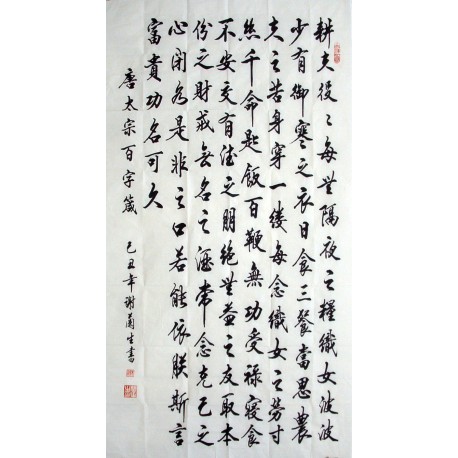 耕夫役々每無隔夜之糧織女波波
少有御寒之衣日食三餐當思農
夫之苦身穿一缕每念織女之勞寸
絲千命匙飯百鞭無功受禄寝食
不安交有德之朋絶無益之友取本
份之財戒無名之酒常念克己之
心闭是非之口若能依朕斯言
富貴功名可久
唐太宗百字箴 己丑年谢蘭生書